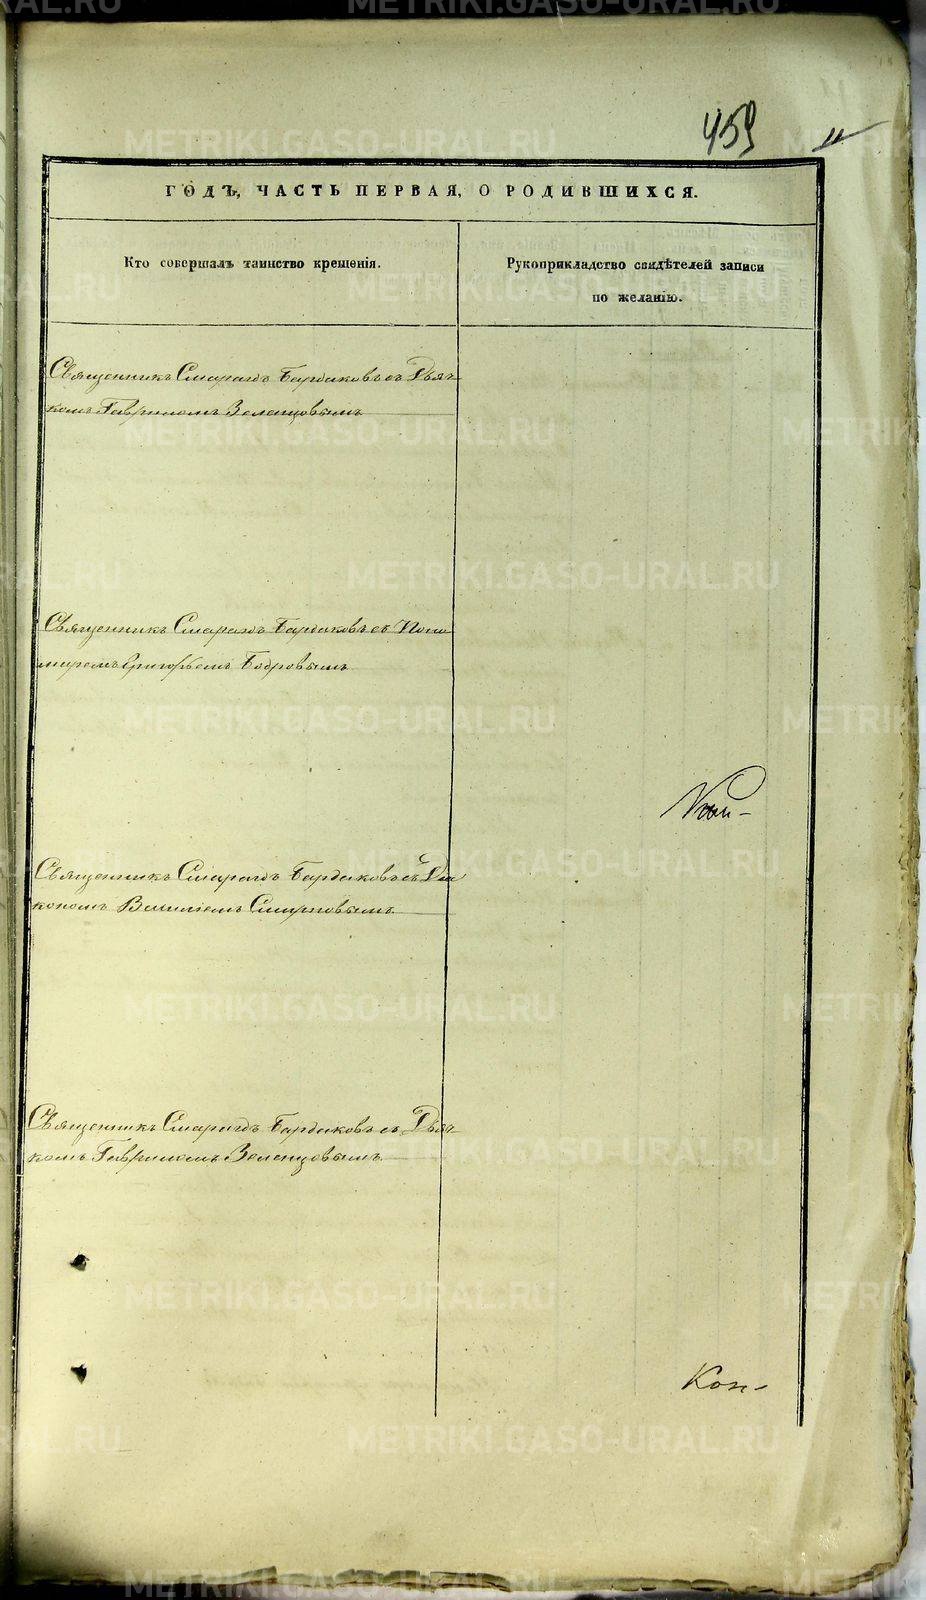 459
11
ГОДЪ, ЧАСТЬ ПЕРВАЯ, О РОДИВШИХСЯ.
Кто совершалъ таинство крещенія.
Рукоприкладство свидѣтелей записи
по желанію.
Священникъ Смарагдъ Бардаковъ съ Дьяч-
комъ Гавриломъ Зеленцовымъ
Священникъ Смарагдъ Бардаковъ съ Поно-
маремъ Григорьемъ Бобровымъ
Священникъ Смарагдъ Бардаковъ съ Діа
кономъ Василіемъ Смирновымъ
Священникъ Смарагдъ Бардаковъ съ Дьяч-
комъ Гавриломъ Зеленцовымъ
Кон-
METRIKI.GASO-URAL.RU